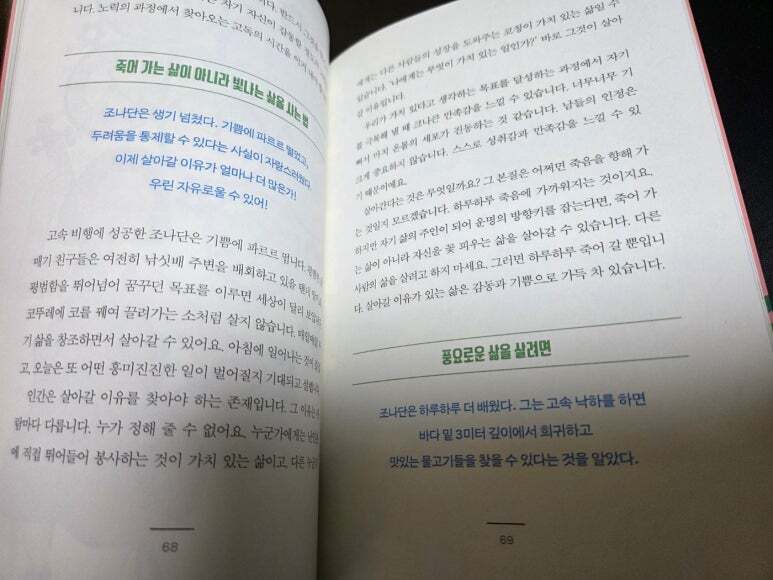 니다. 노력의 과정에서 찾아오는 고독의 시간을
죽어 가는 삶이 아니라 빛나는 삶을 사는 법
조나단은 생기 넘쳤다. 기쁨에 파르르 떨었고,
두려움을 통제할 수 있다는 사실이 자랑스러웠다.
이제 살아갈 이유가 얼마나 더 많은가!
우린 자유로울 수 있어!
고속 비행에 성공한 조나단은 기쁨에 파르르 떱니다.
매기 친구들은 여전히 낚싯배 주변을 배회하고 있을
평범함을 뛰어넘어 꿈꾸던 목표를 이루면 세상이 달리
코뚜레에 코를 꿰여 끌려가는 소처럼 살지 않습니다.
기 삶을 창조하면서 살아갈 수 있어요. 아침에 일어나는 것이
고, 오늘은 또 어떤 흥미진진한 일이 벌어질지 기대되고
인간은 살아갈 이유를 찾아야 하는 존재입니다. 그 이유는
람마다 다릅니다. 누가 정해 줄 수 없어요. 누군가에게는
에 직접 뛰어들어 봉사하는 것이 가치 있는 삶이고, 다른
68
에게는 다른 사람들의 성장을 도와주는 코칭이 가치 있는 삶일 수
있습니다. '나에게는 무엇이 가치 있는 일인가?' 바로 그것이 살아
갈 이유입니다.
우리가 가치 있다고 생각하는 목표를 달성하는 과정에서 자기
를 극복해 낼 때 크나큰 만족감을 느낄 수 있습니다. 너무너무 기
뻐서 마치 온몸의 세포가 진동하는 것 같습니다. 남들의 인정은
크게 중요하지 않습니다. 스스로 성취감과 만족감을 느낄 수 있
기 때문이에요.
살아간다는 것은 무엇일까요? 그 본질은 어쩌면 죽음을 향해 가
는 것일지 모르겠습니다. 하루하루 죽음에 가까워지는 것이지요.
하지만 자기 삶의 주인이 되어 운명의 방향키를 잡는다면, 죽어 가
는 삶이 아니라 자신을 꽃 피우는 삶을 살아갈 수 있습니다. 다른
사람의 삶을 살려고 하지 마세요. 그러면 하루하루 죽어 갈 뿐입니
다. 살아갈 이유가 있는 삶은 감동과 기쁨으로 가득 차 있습니다.
풍요로운 삶을 살려면
조나단은 하루하루 더 배웠다. 그는 고속 낙하를 하면
바다 밑 3미터 깊이에서 회귀하고
맛있는 물고기들을 찾을 수 있다는 것을 알았다.
69